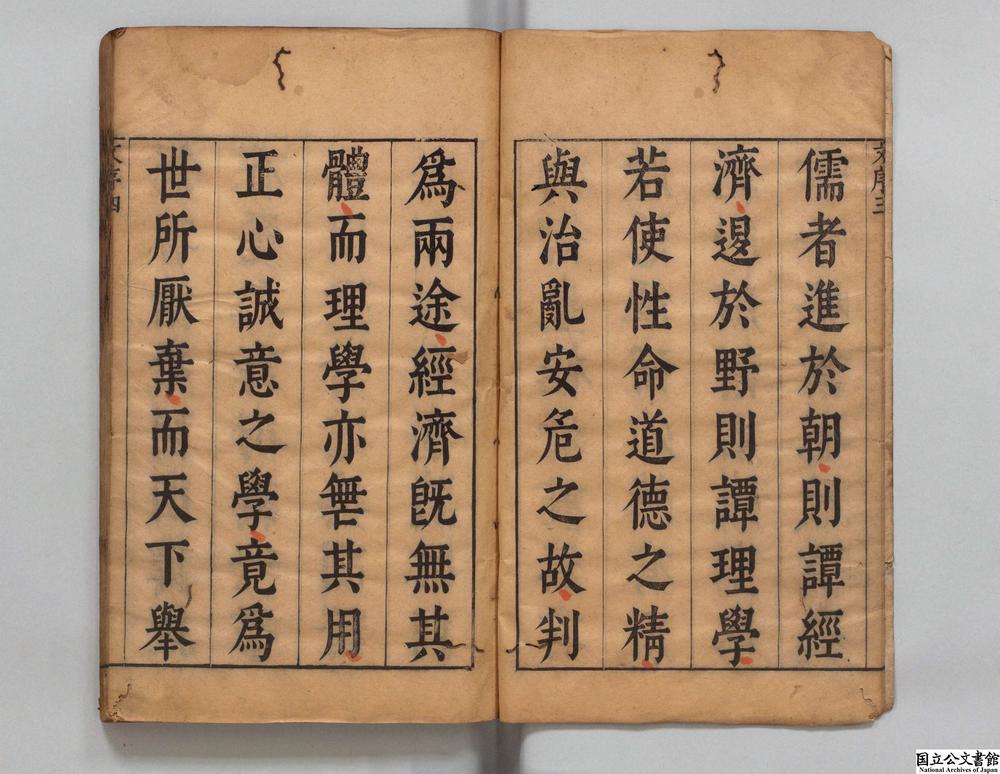 儒者進於朝則譚經
濟退於野則譚理學
若使性命道德之精
與治亂安危之故判
爲兩途經濟旣無其
體而理學亦無其用
正心誠意之學竟爲
世所厭棄而天下舉
序三
序四
国立公文書館
National Archives of Japan